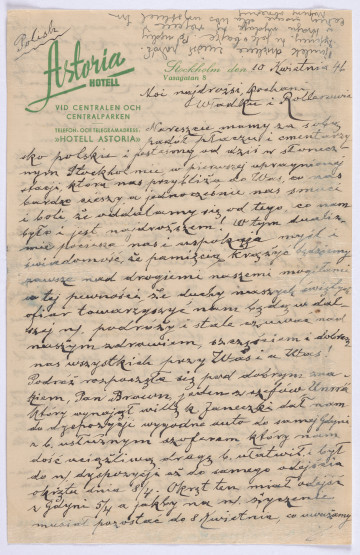 Polish
Astoria
HOTELL
VID CENTRALEN OCH
CENTRALPARKEN
TELEFON- OCH TELEGRAMADRESS:
»HOTELL ASTORIA«
Stockholm den 10 Kwietnia 46
Vasagatan 8
Moi najdrożsi Kochani
Władku i
Nareszcie mamy za sobą
padół płaczu i cmentarzy
sko polskie i jesteśmy od dziś w słonecz
nym Stockholmie, w pierwszej upragnionej
stacji która nas przybliża do Was, co nas
bardzo cieszy a jednocześnie nas smuci
i boli że oddalamy się od tego, co nam
było i jest najdroższem! W tym dualiz
mie pociesza nas i uspokaja myśl i
świadomość, że pamięcią krążyć będziemy
zawsze nad drogiemi naszemi mogiłami
w tej pewności, że duchy naszych świętych
ofiar towarzyszyć nam będą w dal
szej nj. podróży i stale czuwać nad
naszym zdrowiem, szczęściem i dobrem
nas wszystkich przy Was i u Was!
Podróż rozpoczęła się pod dobrym zna
kiem, Pan Brown, jeden z szefów Unrra
który wynajął willę Janeczki dał nam
do dyspozycji wygodne auto do samej Gdyni
z b. usłużnym szoferem który nam
dość uciążliwą drogę b. ułatwił i był
do nj. dyspozycji aż do samego odejścia
okrętu dnia 8/4. Okręt ten miał odejść
z Gdyni 5/4 a jakby na nj. życzenie
musiał pozostać do 8 Kwietnia, co uważamy